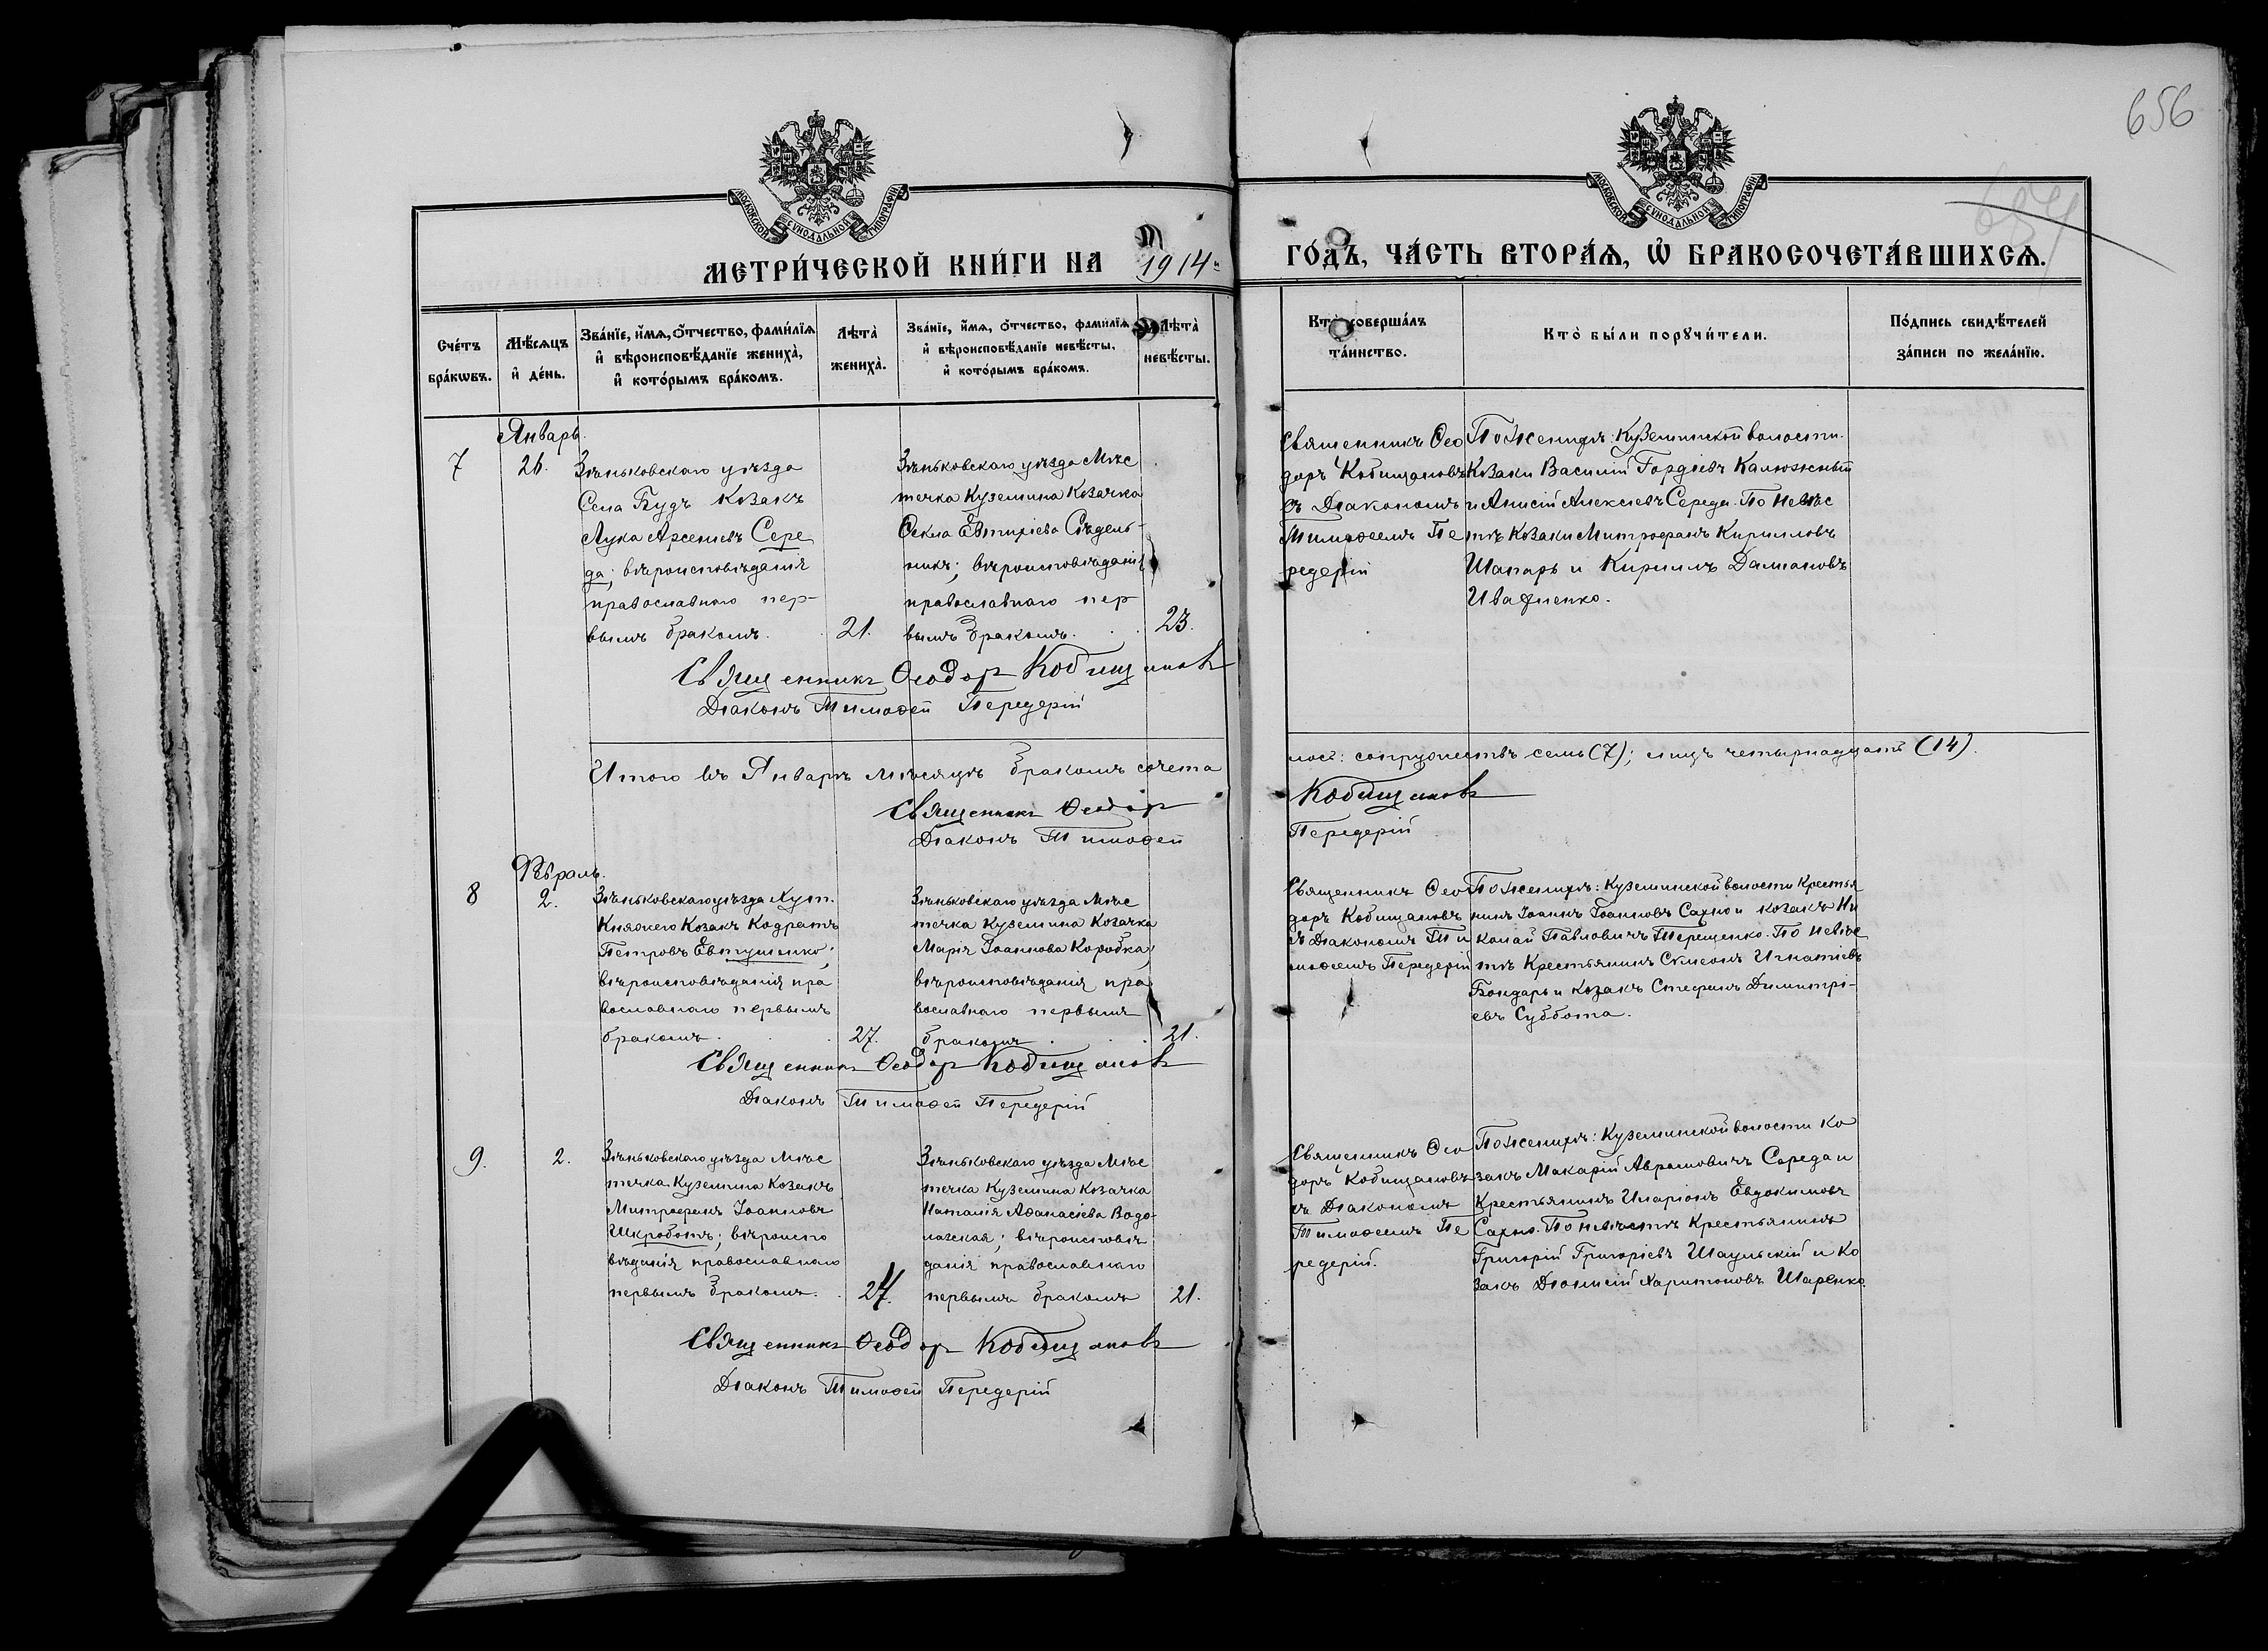 656
МОСКОВСКОЙ СѴНОДАЛЬНОЙ ТИПОГРАФІИ
МОСКОВСКОЙ СѴНОДАЛЬНОЙ ТИПОГРАФІИ
МЕТРИ́ЧЕСКОЙ КНИ́ГИ НА 1914
ГО́ДЪ, ЧА́СТЬ ВТОРА́Ѧ, Ѡ҆ БРАКОСОЧЕТА́ВШИХСѦ.
Сче́тъ бра́кѡвъ.
Мѣ́сѧцъ и҆ де́нь.
Зва́нїе, и҆́мѧ, ѻ҆́тчество, фами́лїѧ и҆ вѣроисповѣ́данїе жениха̀, и҆ кото́рымъ бра́комъ.
Лѣта̀ жениха̀.
Зва́нїе, и҆́мѧ, ѻ҆́тчество, фами́лїѧ и҆ вѣроисповѣ́данїе невѣ́сты, и҆ кото́рымъ бра́комъ.
Лѣта̀ невѣ́сты.
Кто̀ соверша́лъ та́инство.
Кто̀ бы́ли порꙋчи́тели.
По́дпись свидѣ́телей за́писи по жела́нїю.
Январь.
7
26.
Зѣньковскаго уѣзда
Села Будъ Козакъ
Лука Арсеніевъ Сере
да; вѣроисповѣданія
православнаго пер-
вымъ бракомъ.
21.
Зѣньковскаго уѣзда Мѣс
течка Куземина Козачка
Ѳекла Евтихіева Съдель-
никъ; вѣроисповѣданія
православнаго пер
вымъ бракомъ.
23.
Священникъ Ѳео
доръ Кобищановъ
съ Діакономъ
Тимоѳеемъ Пе
редерій
По Женихѣ: Куземинской волости.
Козаки Василій Гордіевъ Калюжный
и Анисій Алексіевъ Середа. По Невѣс
тѣ Козаки Митрофанъ Кирилловъ
Шапаръ и Кириллъ Даміановъ
Иващенко.
Священникъ Ѳеодоръ Кобищановъ
Діаконъ Тимоѳей Передерій
Итого въ Январѣ мѣсяцѣ бракомъ сочета
лось: супружествъ семь (7); лицъ четырнадцать (14).
Священникъ Ѳеодоръ Кобищановъ
Діаконъ Тимоѳей Передерій
Февраль.
8
2.
Зѣньковскаго уѣзда Хут.
Княжего Козакъ Кодратъ
Петровъ Евтушенко;
вѣроисповѣданія пра
вославнаго первымъ
бракомъ.
27.
Зѣньковскаго уѣзда Мѣс
течка Куземина Козачка
Марія Іоаннова Коробка,
вѣроисповѣданія пра
вославнаго первымъ
бракомъ
21.
Священникъ Ѳео
доръ Кобищановъ
съ Діакономъ Ти
моѳеемъ Передерій
По Женихѣ: Куземинской волости Крестья
нинъ Іоаннъ Іоанновъ Сахно и козакъ Ни
колай Павловичъ Терещенко. По Невѣс
тѣ Крестьянинъ Сѵмеонъ Игнатіевъ
Бондарь и козакъ Стефанъ Димитрі-
евъ Суббота.
Священникъ Ѳеодоръ Кобищановъ
Діаконъ Тимоѳей Передерій
9.
2.
Зѣньковскаго уѣзда Мѣс
течка Куземина Козакъ
Митрофанъ Іоанновъ
Шкроботъ; вѣроиспо
вѣданія православнаго
первымъ бракомъ.
24.
Зѣньковскаго уѣзда Мѣс
течка Куземина Козачка
Наталія Аѳанасіева Водо-
лазская; вѣроисповѣ
данія православнаго
первымъ бракомъ
21.
Священникъ Ѳео
доръ Кобищановъ
съ Діакономъ
Тимоѳеемъ Пе
редерій.
По Женихѣ: Куземинской волости Ко
закъ Макарій Аврамовичъ Середа и
Крестьянинъ Иларіонъ Евдокимовъ
Сахно. По Невѣстѣ Крестьянинъ
Григорій Григоріевъ Шаульскій и Ко
закъ Діонисій Харитоновъ Шаренко.
Священникъ Ѳеодоръ Кобищановъ
Діаконъ Тимоѳей Передерій